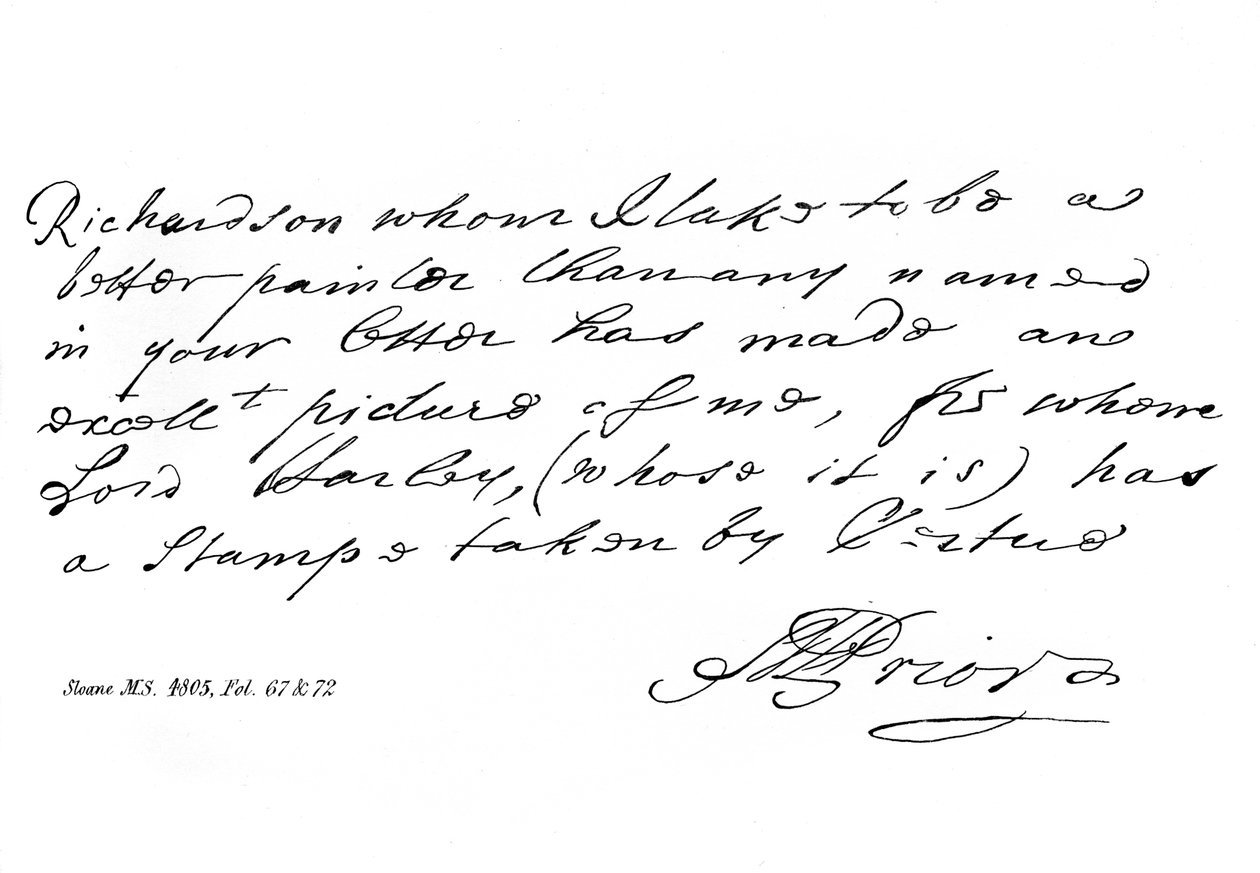 Richardson whom I take to be a
better painter than any named
in your letter has made an
excellt picture of me, from whome
Lord Harley, (whose it is) has
a Stampe taken by Vertue
MPrior
Sloane M.S. 4805, Fol. 67 & 72